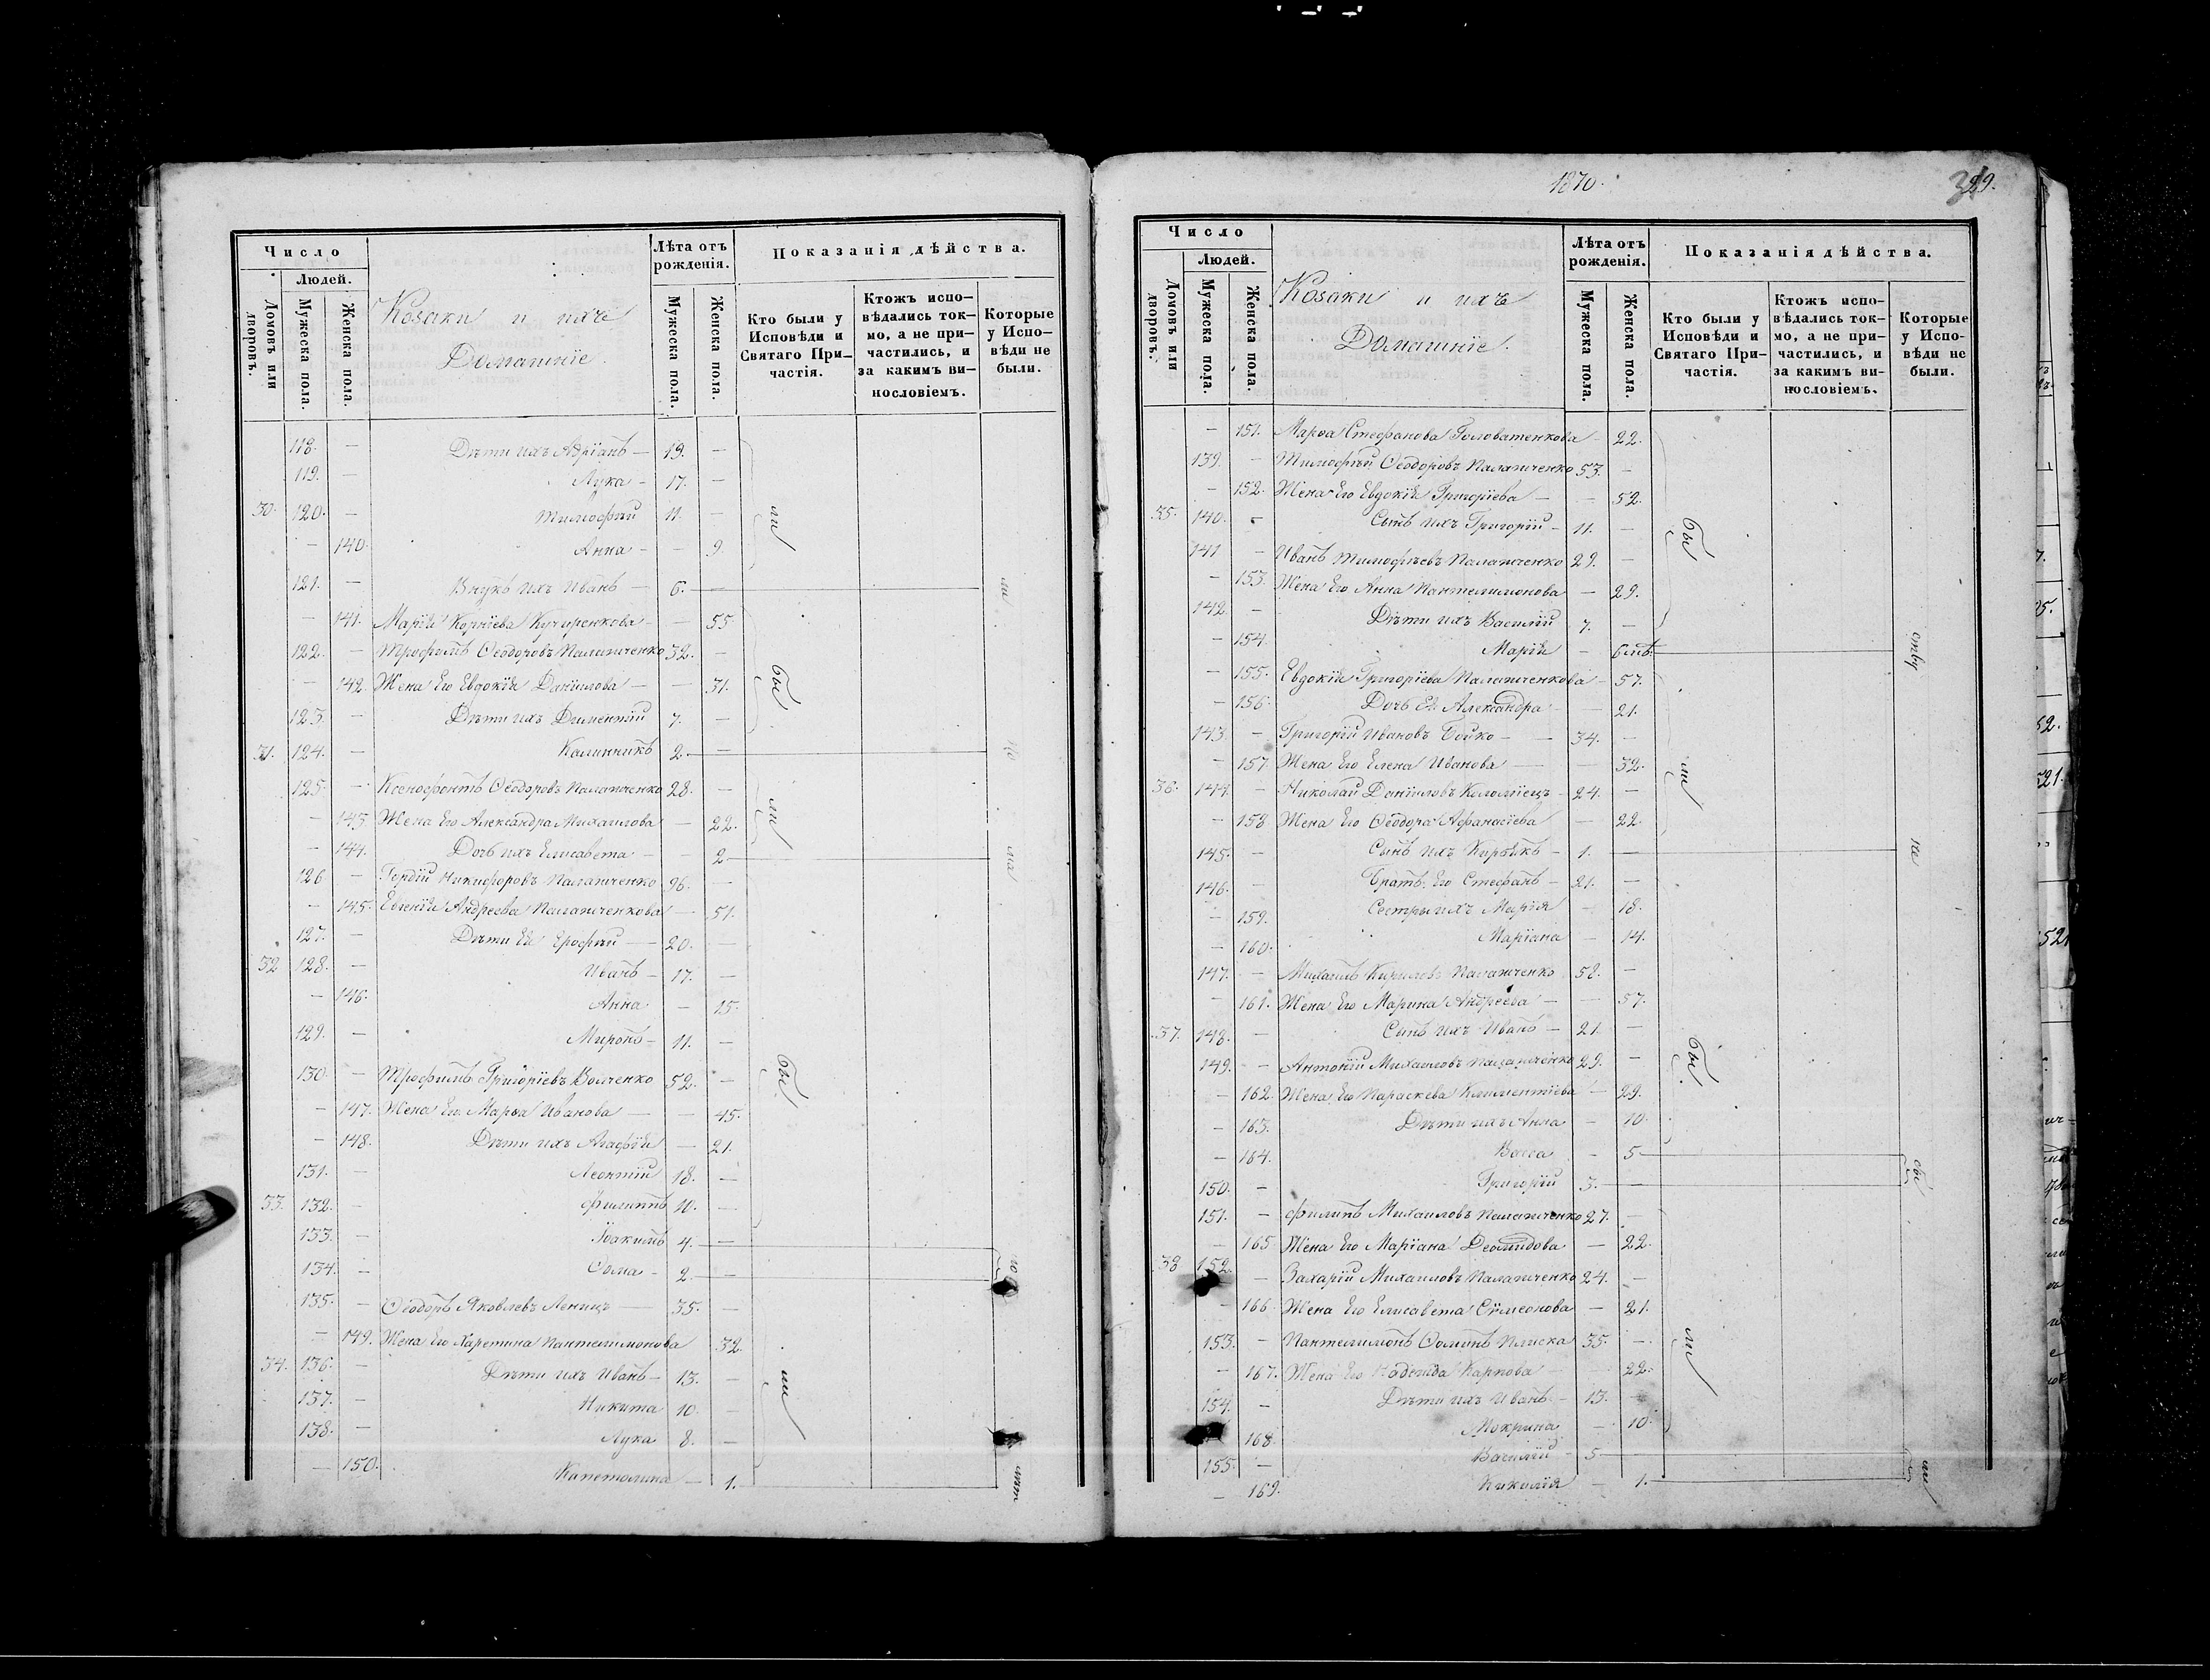 Число
Людей.
Домовъ или дворовъ.
Мужеска пола.
Женска пола.
Козаки и ихъ
Домашніе.
Лѣта отъ рожденія.
Мужеска пола.
Женска пола.
Показанія дѣйства.
Кто были у Исповѣди и Святаго Причастія.
Ктожъ исповѣдались токмо, а не причастились, и за какимъ винословіемъ.
Которые у Исповѣди не были.
118. — Дѣти ихъ Адріанъ — 19. —
119. — Лука — 17. —
30. 120. — Тимофѣй 11. —
— 140. Анна — — 9.
121. — Внукъ ихъ Иванъ — 6. —
— 141. Марія Корнѣева Кучеренкова — — 55.
122. — Трофимъ Ѳеодоровъ Палапченко 32. —
— 142. Жена Его Евдокія Даніилова — — 31.
123. — Дѣти ихъ Дементій 7. —
31. 124. — Калинникъ 2. —
125. — Ксенофонтъ Ѳеодоровъ Палапченко 28. —
— 143. Жена Его Александра Михаилова — 22.
— 144. Дочь ихъ Елисавета — — 2
126. — Гордій Никифоровъ Палапченко 96. —
— 145. Евгенія Андреева Палапченкова — 51.
127. — Дѣти Ея Ерофѣй — 20. —
32 128. — Иванъ — 17. —
— 146. Анна — 15.
129. — Миронъ — 11. —
130. — Трофимъ Григоріевъ Волченко 52. —
— 147. Жена Его Марѳа Иванова — — 45.
— 148. Дѣти ихъ Агафія — 21.
131. — Леонтій 18. —
33. 132. — Филиппъ 10. —
133. — Іоакимъ 4. —
134. — Ѳома — 2. —
135. — Ѳеодоръ Яковлевъ Леницъ — 35. —
— 149. Жена Его Харетина Пантелимонова 32.
34. 136. — Дѣти ихъ Иванъ — 13. —
137. — Никита 10. —
138. — Лука 8. —
— 150. Капетолина — 1.
бы
ли
бы
ли
1870.
29.
Число
Людей.
Домовъ или дворовъ.
Мужеска пола.
Женска пола.
Козаки и ихъ
Домашніе.
Лѣта отъ рожденія.
Мужеска пола.
Женска пола.
Показанія дѣйства.
Кто были у Исповѣди и Святаго Причастія.
Ктожъ исповѣдались токмо, а не причастились, и за какимъ винословіемъ.
Которые у Исповѣди не были.
— 151. Марѳа Стефанова Головатенкова — 22.
139. — Тимофѣй Ѳеодоровъ Палапченко 53. —
— 152. Жена Его Евдокія Григоріева — — 52.
35. 140. — Сынъ ихъ Григорій — 11. —
141 — Иванъ Тимофѣевъ Палапченко 29. —
— 153. Жена Его Анна Пантелимонова — 29.
142. — Дѣти ихъ Василій 7. —
— 154. Марія — 6 мѣ.
— 155. Евдокія Григоріева Палапченкова — 57.
— 156. Дочь Ея Александра — — 21.
143. — Григорій Ивановъ Бойко — — 34. —
— 157. Жена Его Елена Иванова — — 32.
36. 144. — Николай Даніиловъ Коломіецъ — 24. —
— 158 Жена Его Ѳеодора Афанасіева — 22.
145. — Сынъ ихъ Кирѣикъ — 1. —
146. — Братъ Его Стефанъ — 21. —
— 159. Сестры ихъ Марія — 18.
— 160. Маріана — 14.
147. — Михаилъ Кириловъ Палапченко 58. —
— 161. Жена Его Марина Андреева — — 57.
37. 148. — Сынъ ихъ Иванъ — 21. —
149. — Антоній Михаиловъ Палапченко 29. —
— 162. Жена Его Параскева Климентіева — 29.
— 163. Дѣти ихъ Анна — 10.
— 164. Васса — 5
150. — Григорій 3. —
151. — Филипъ Михаиловъ Палапченко 27. —
— 165 Жена Его Маріана Деомидова — 22.
38 152. — Захарій Михаиловъ Палапченко 24. —
— 166. Жена Его Елисавета Сѵмеонова — 21.
153. — Пантелимонъ Ѳоминъ Плиска 35. —
— 167. Жена Его Надежда Карпова 22.
154. — Дѣти ихъ Иванъ — 13. —
168. Мокрина — 10.
155. — Василій — 5
— 169. Николія — 1.
бы
ли
бы
ли